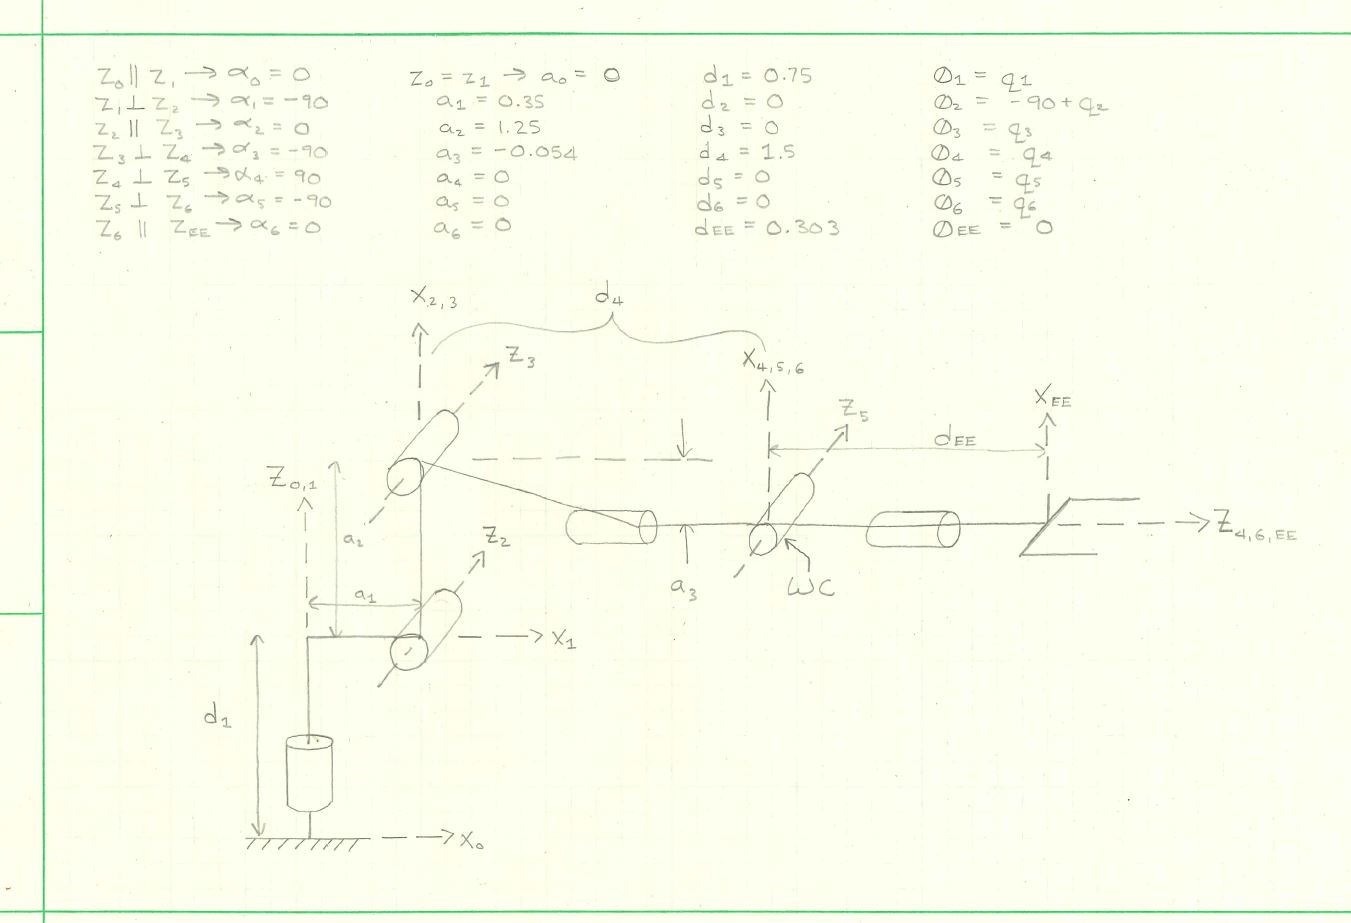 Z₀ || Z₁ → α₀ = 0
Z₁ ⊥ Z₂ → α₁ = -90
Z₂ || Z₃ → α₂ = 0
Z₃ ⊥ Z₄ → α₃ = -90
Z₄ ⊥ Z₅ → α₄ = 90
Z₅ ⊥ Z₆ → α₅ = -90
Z₆ || Z_EE → α₆ = 0
Z₀ = Z₁ → a₀ = 0
a₁ = 0.35
a₂ = 1.25
a₃ = -0.054
a₄ = 0
a₅ = 0
a₆ = 0
d₁ = 0.75
d₂ = 0
d₃ = 0
d₄ = 1.5
d₅ = 0
d₆ = 0
d_EE = 0.303
Ø₁ = q₁
Ø₂ = -90 + q₂
Ø₃ = q₃
Ø₄ = q₄
Ø₅ = q₅
Ø₆ = q₆
Ø_EE = 0
X₂,₃
d₄
Z₃
X₄,₅,₆
X_EE
Z₅
d_EE
Z₀,₁
a₂
Z₂
Z₄,₆,EE
a₃
WC
a₁
X₁
d₁
X₀